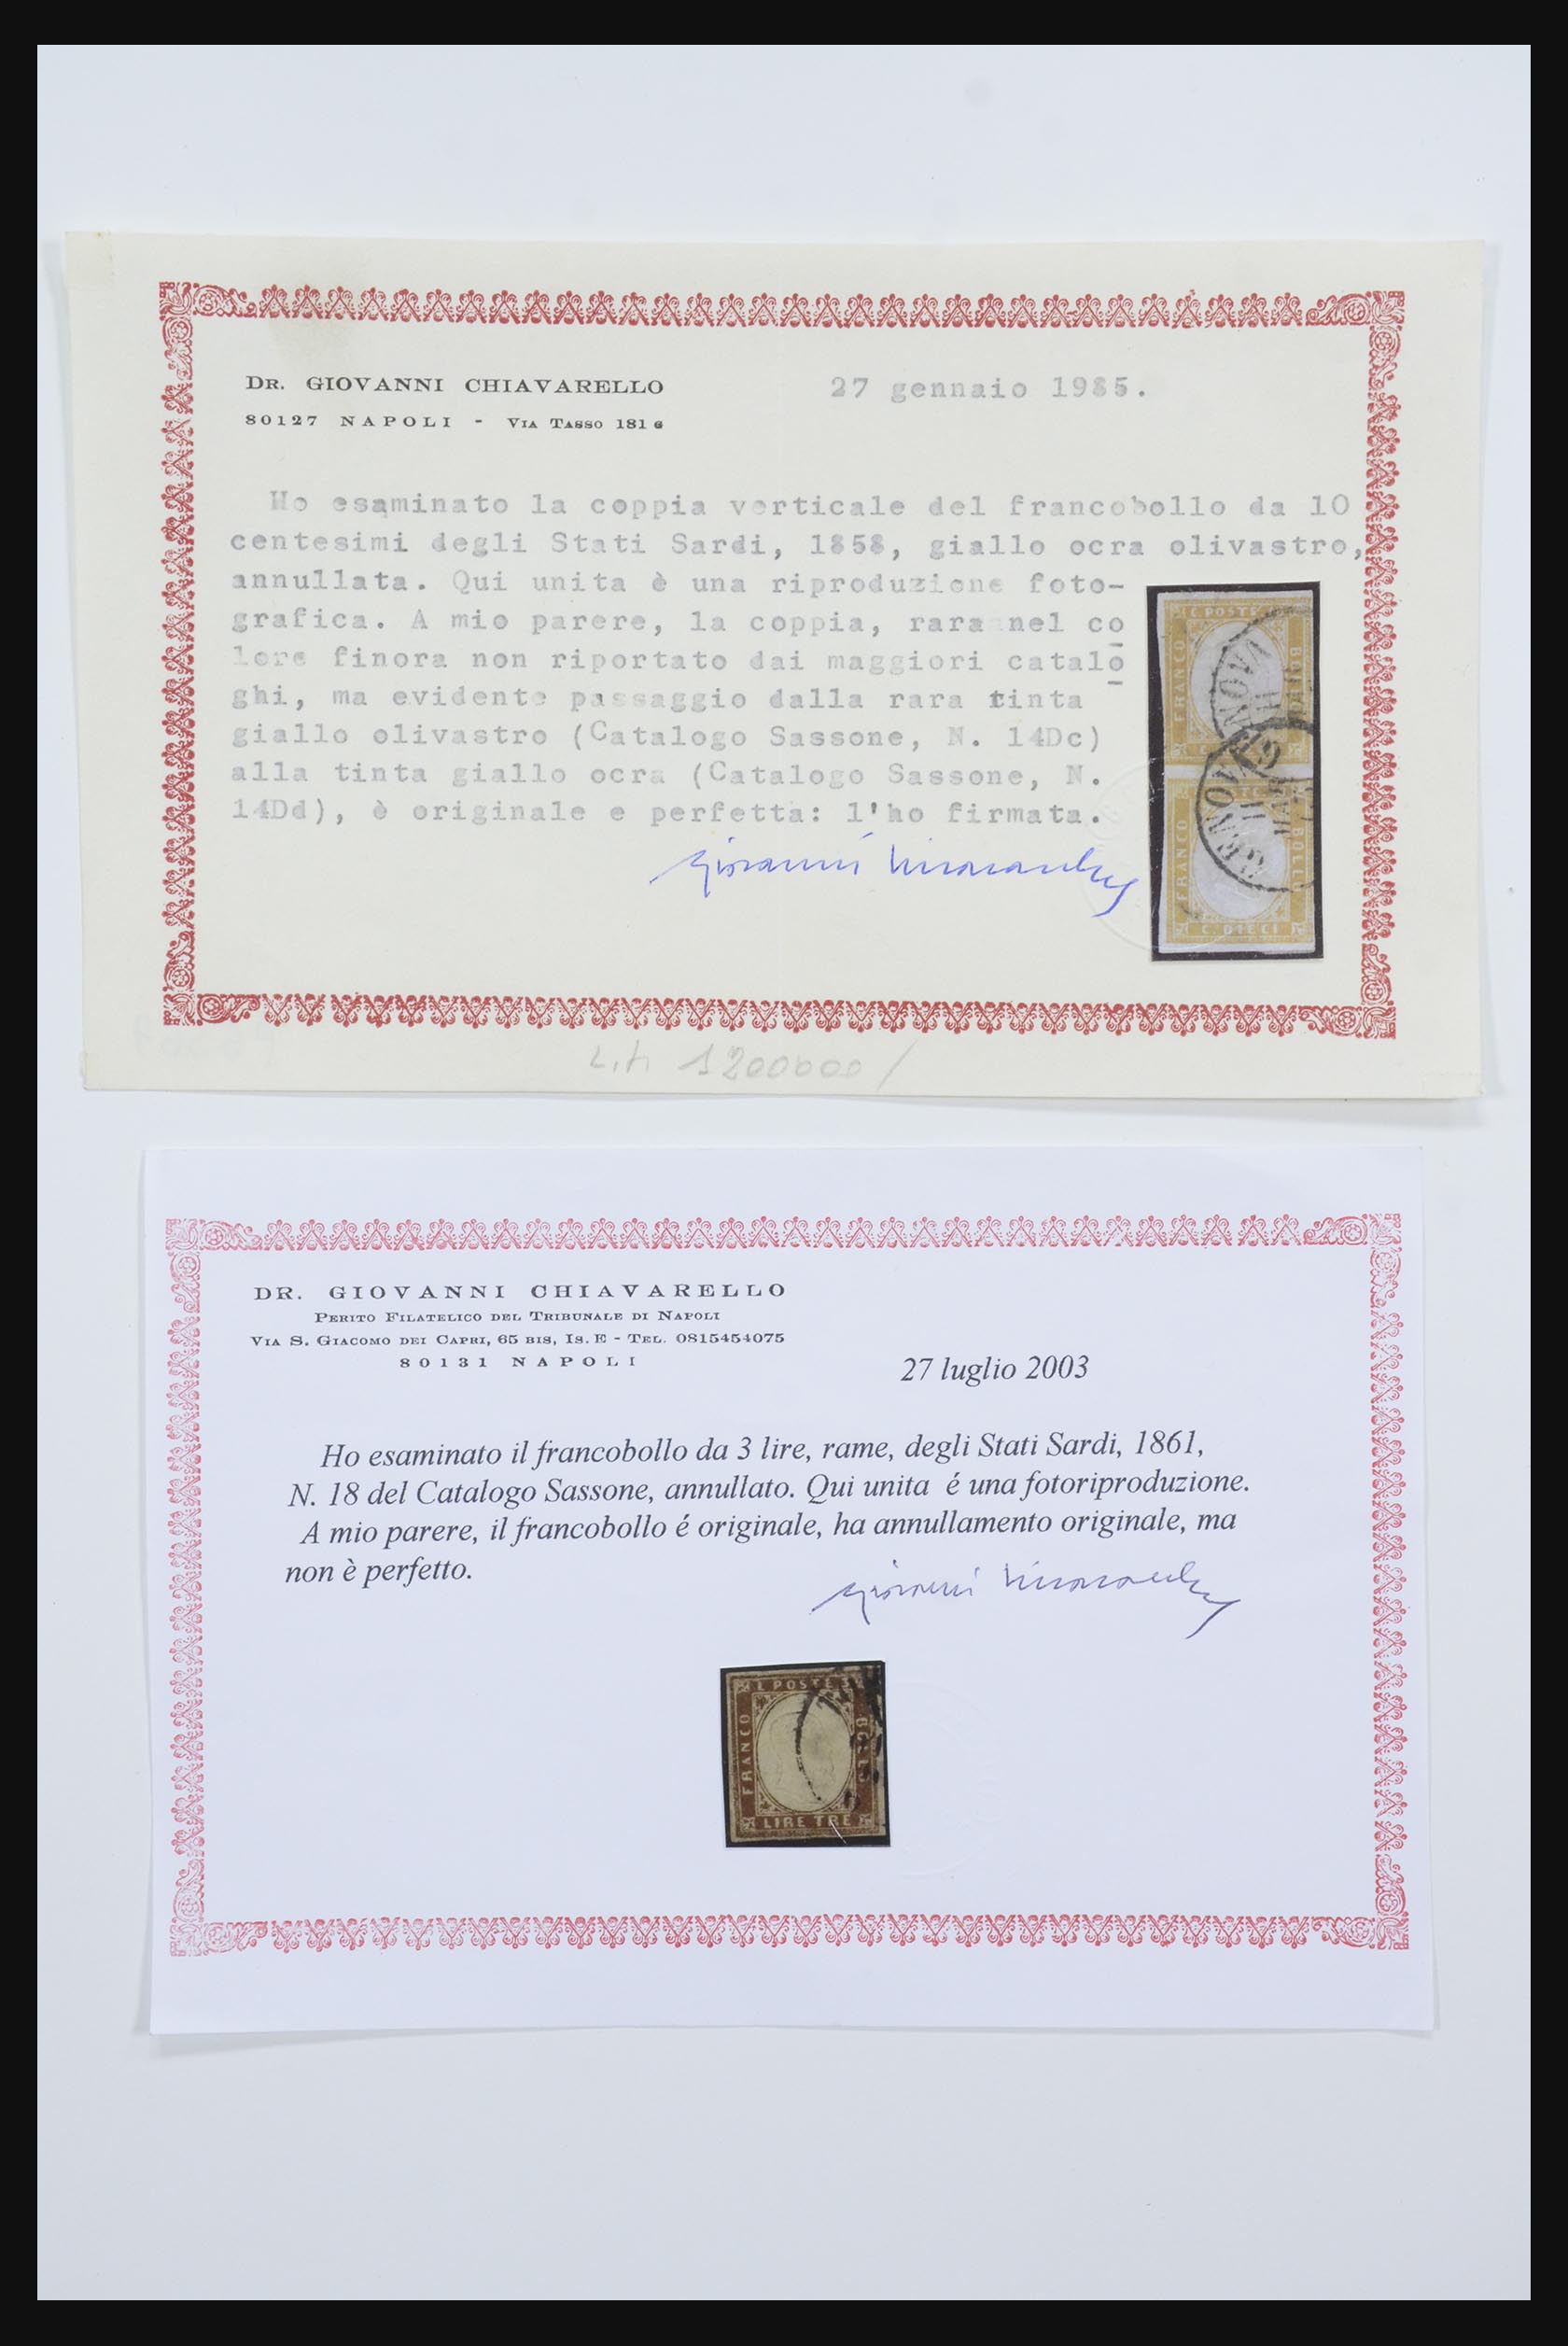 DR. GIOVANNI CHIAVARELLO
80127 NAPOLI - VIA TASSO 181 G
27 gennaio 1985.
Ho esaminato la coppia verticale del francobollo da 10
centesimi degli Stati Sardi, 1858, giallo ocra olivastro,
annullata. Qui unita è una riproduzione foto-
grafica. A mio parere, la coppia, rara nel co
lore finora non riportato dai maggiori catalo
ghi, ma evidente passaggio dalla rara tinta
giallo olivastro (Catalogo Sassone, N. 14Dc)
alla tinta giallo ocra (Catalogo Sassone, N.
14Dd), è originale e perfetta: l'ho firmata.
POSTE
FRANCO
FRANCO
BOLLO
C. DIECI
GENOVA
11
MAR
1200000/
DR. GIOVANNI CHIAVARELLO
PERITO FILATELICO DEL TRIBUNALE DI NAPOLI
VIA S. GIACOMO DEI CAPRI, 65 BIS, IS. E - TEL. 0815454075
80131 NAPOLI
27 luglio 2003
Ho esaminato il francobollo da 3 lire, rame, degli Stati Sardi, 1861,
N. 18 del Catalogo Sassone, annullato. Qui unita é una fotoriproduzione.
A mio parere, il francobollo é originale, ha annullamento originale, ma
non è perfetto.
POSTE
FRANCO
BOLLO
LIRE TRE